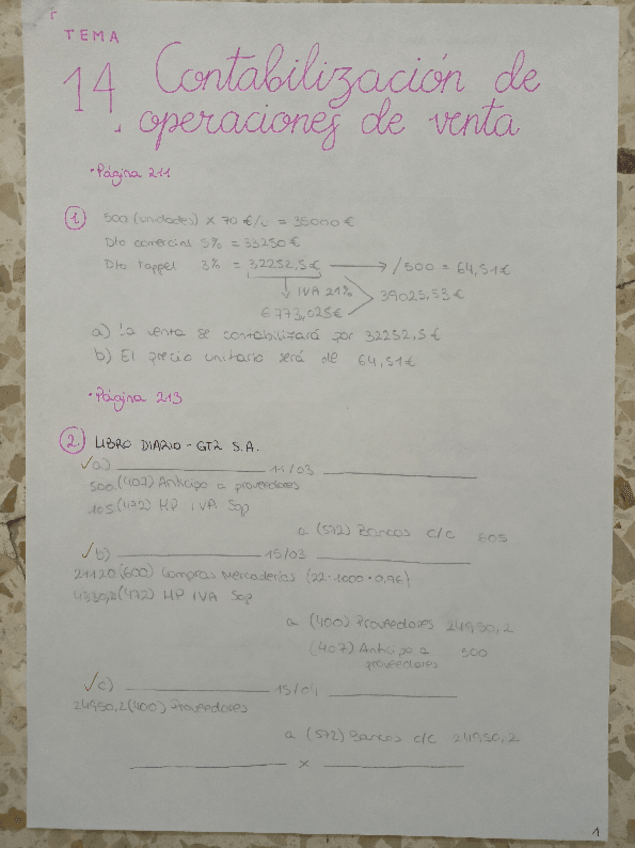 TEMA
14. Contabilización de
operaciones de venta
• Página 211
1 500 (unidades) x 70 €/u = 35000 €
Dto comercial 5% = 33250 €
Dto rappel 3% = 32252,5 € → /500 = 64,51 €
IVA 21% 39025,53 €
6773,025 €
a) La venta se contabilizará por 32252,5 €
b) El precio unitario será de 64,51 €
• Página 213
2 LIBRO DIARIO - GT2 S.A.
✓a) 11/03
500 (407) Anticipo a proveedores
105 (472) HP IVA Sop
a (572) Bancos c/c 605
✓b) 15/03
21120 (600) Compras Mercaderías (22·1000·0,96)
4330,2 (472) HP IVA Sop
a (400) Proveedores 24950,2
(407) Anticipo a 500
proveedores
✓c) 15/04
24950,2 (400) Proveedores
a (572) Bancos c/c 24950,2
x
1